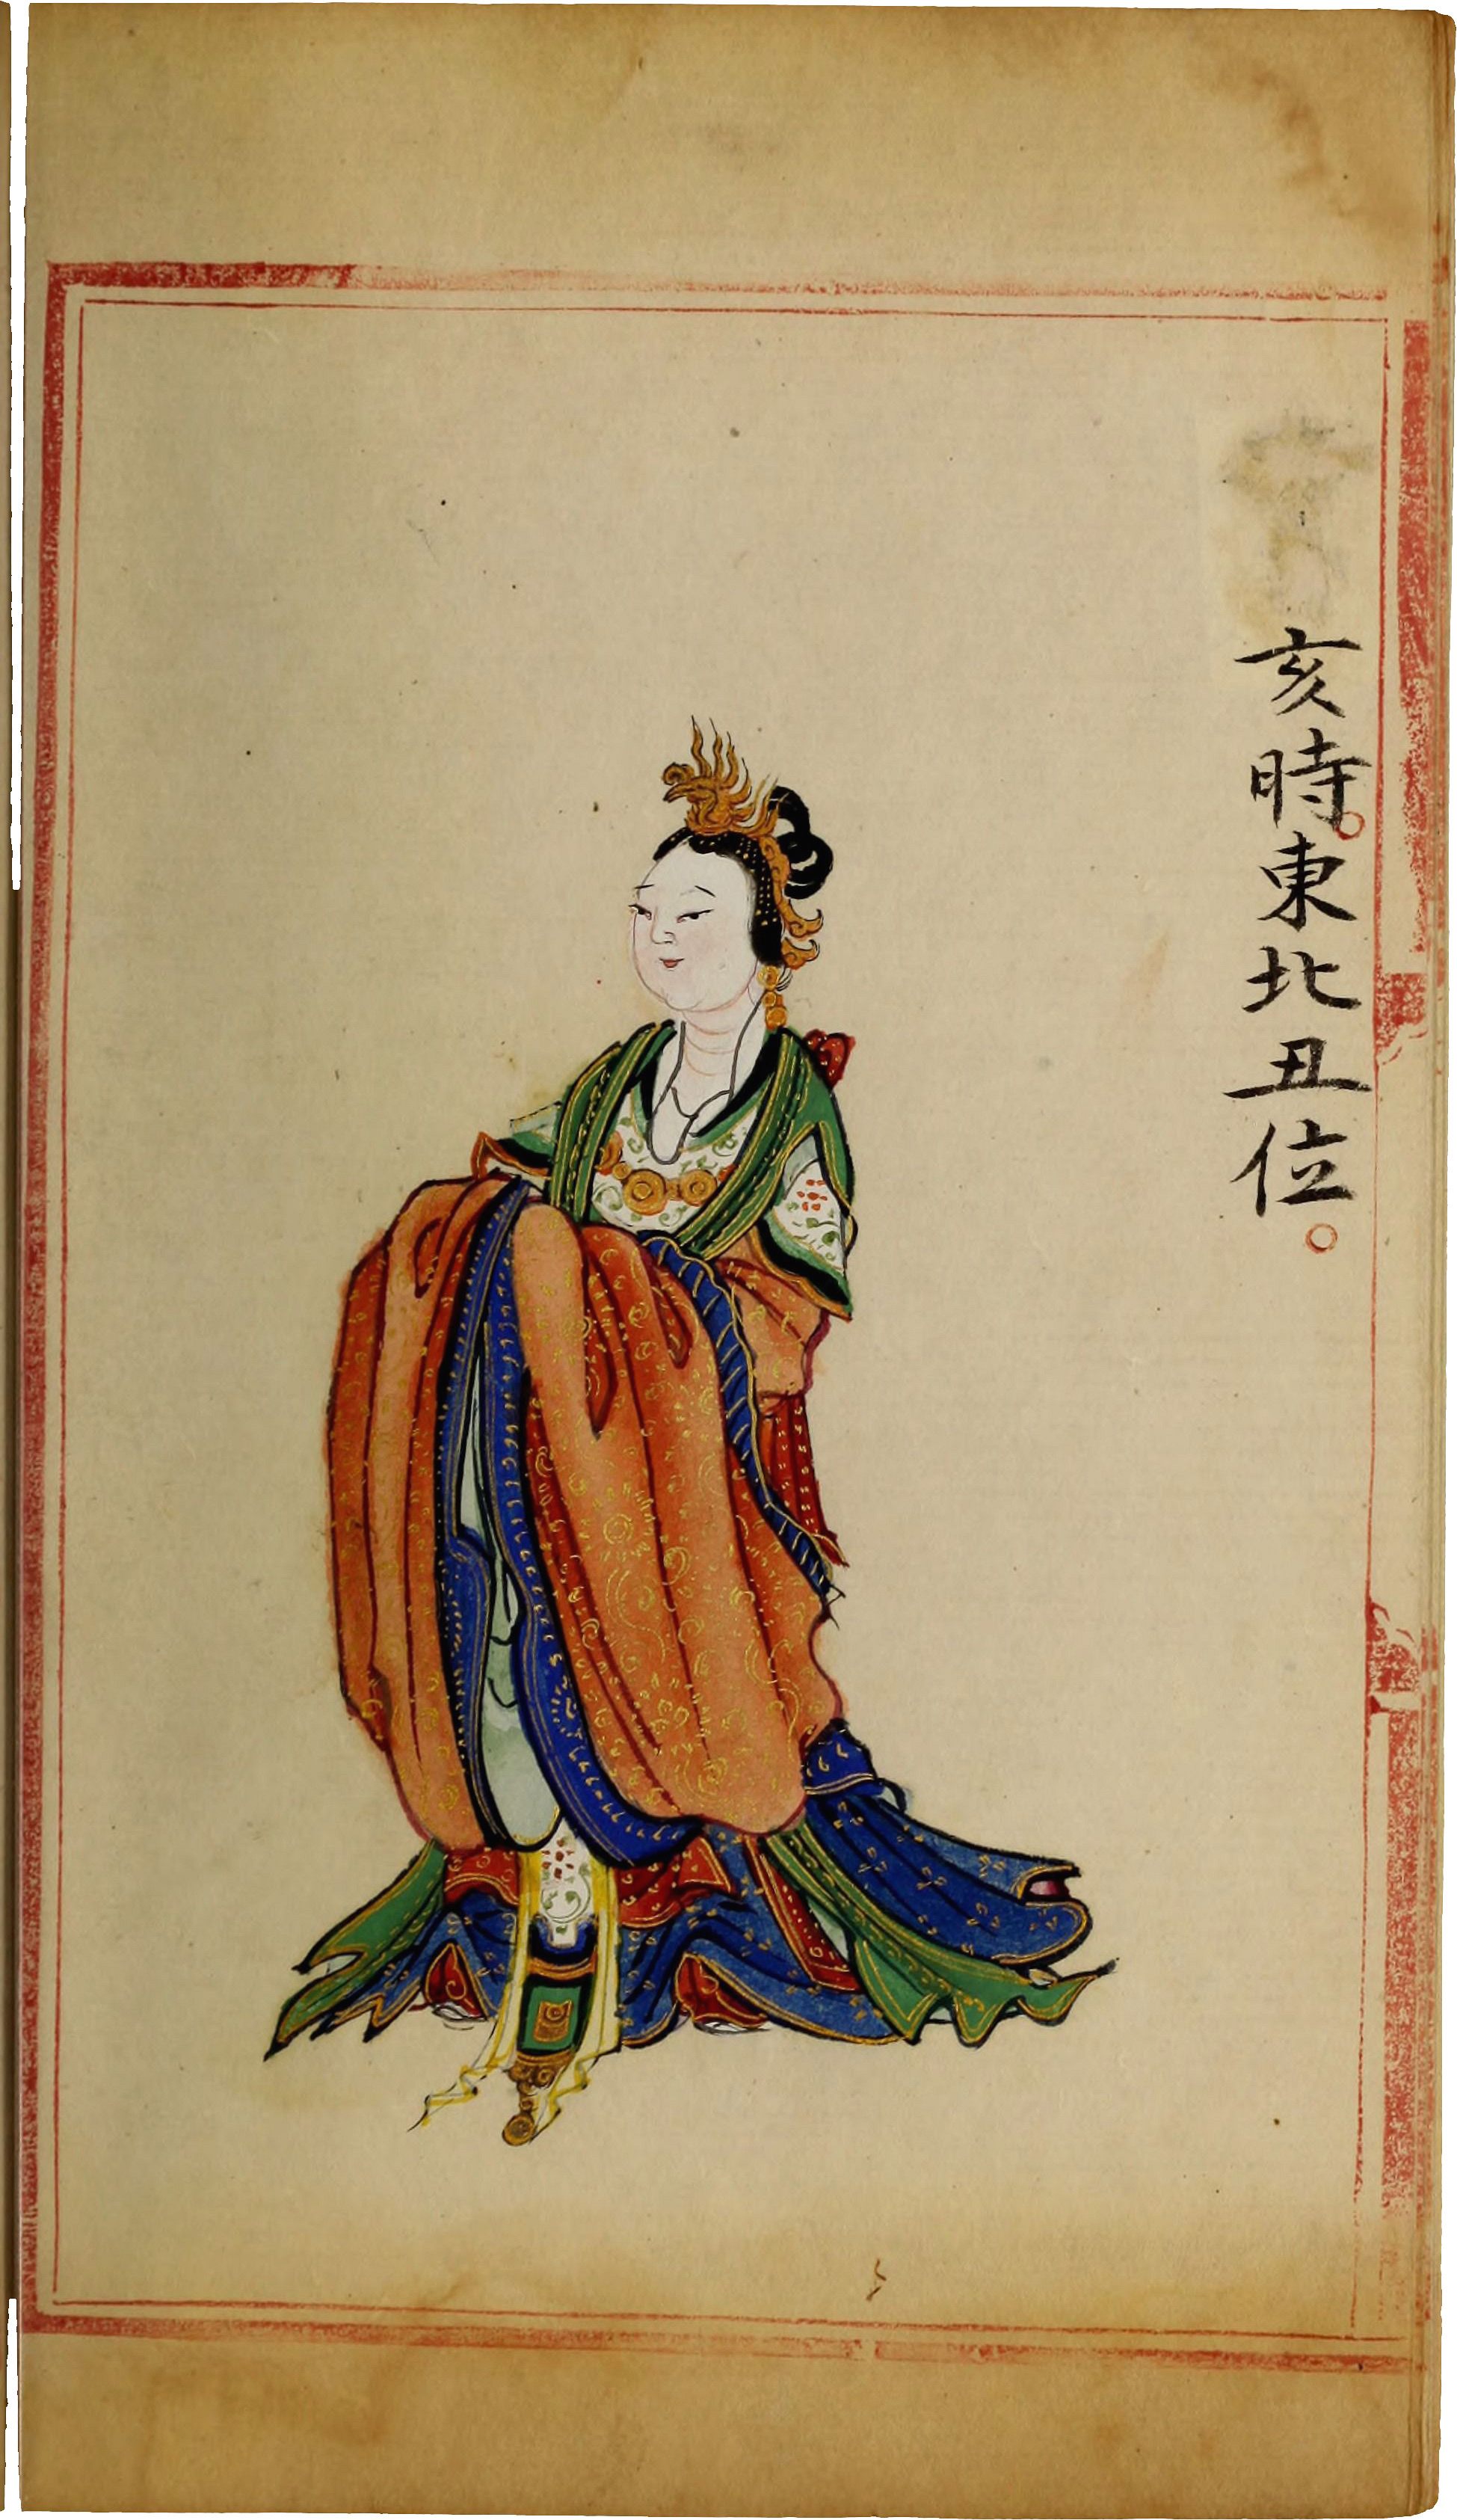 亥時。東北丑位。